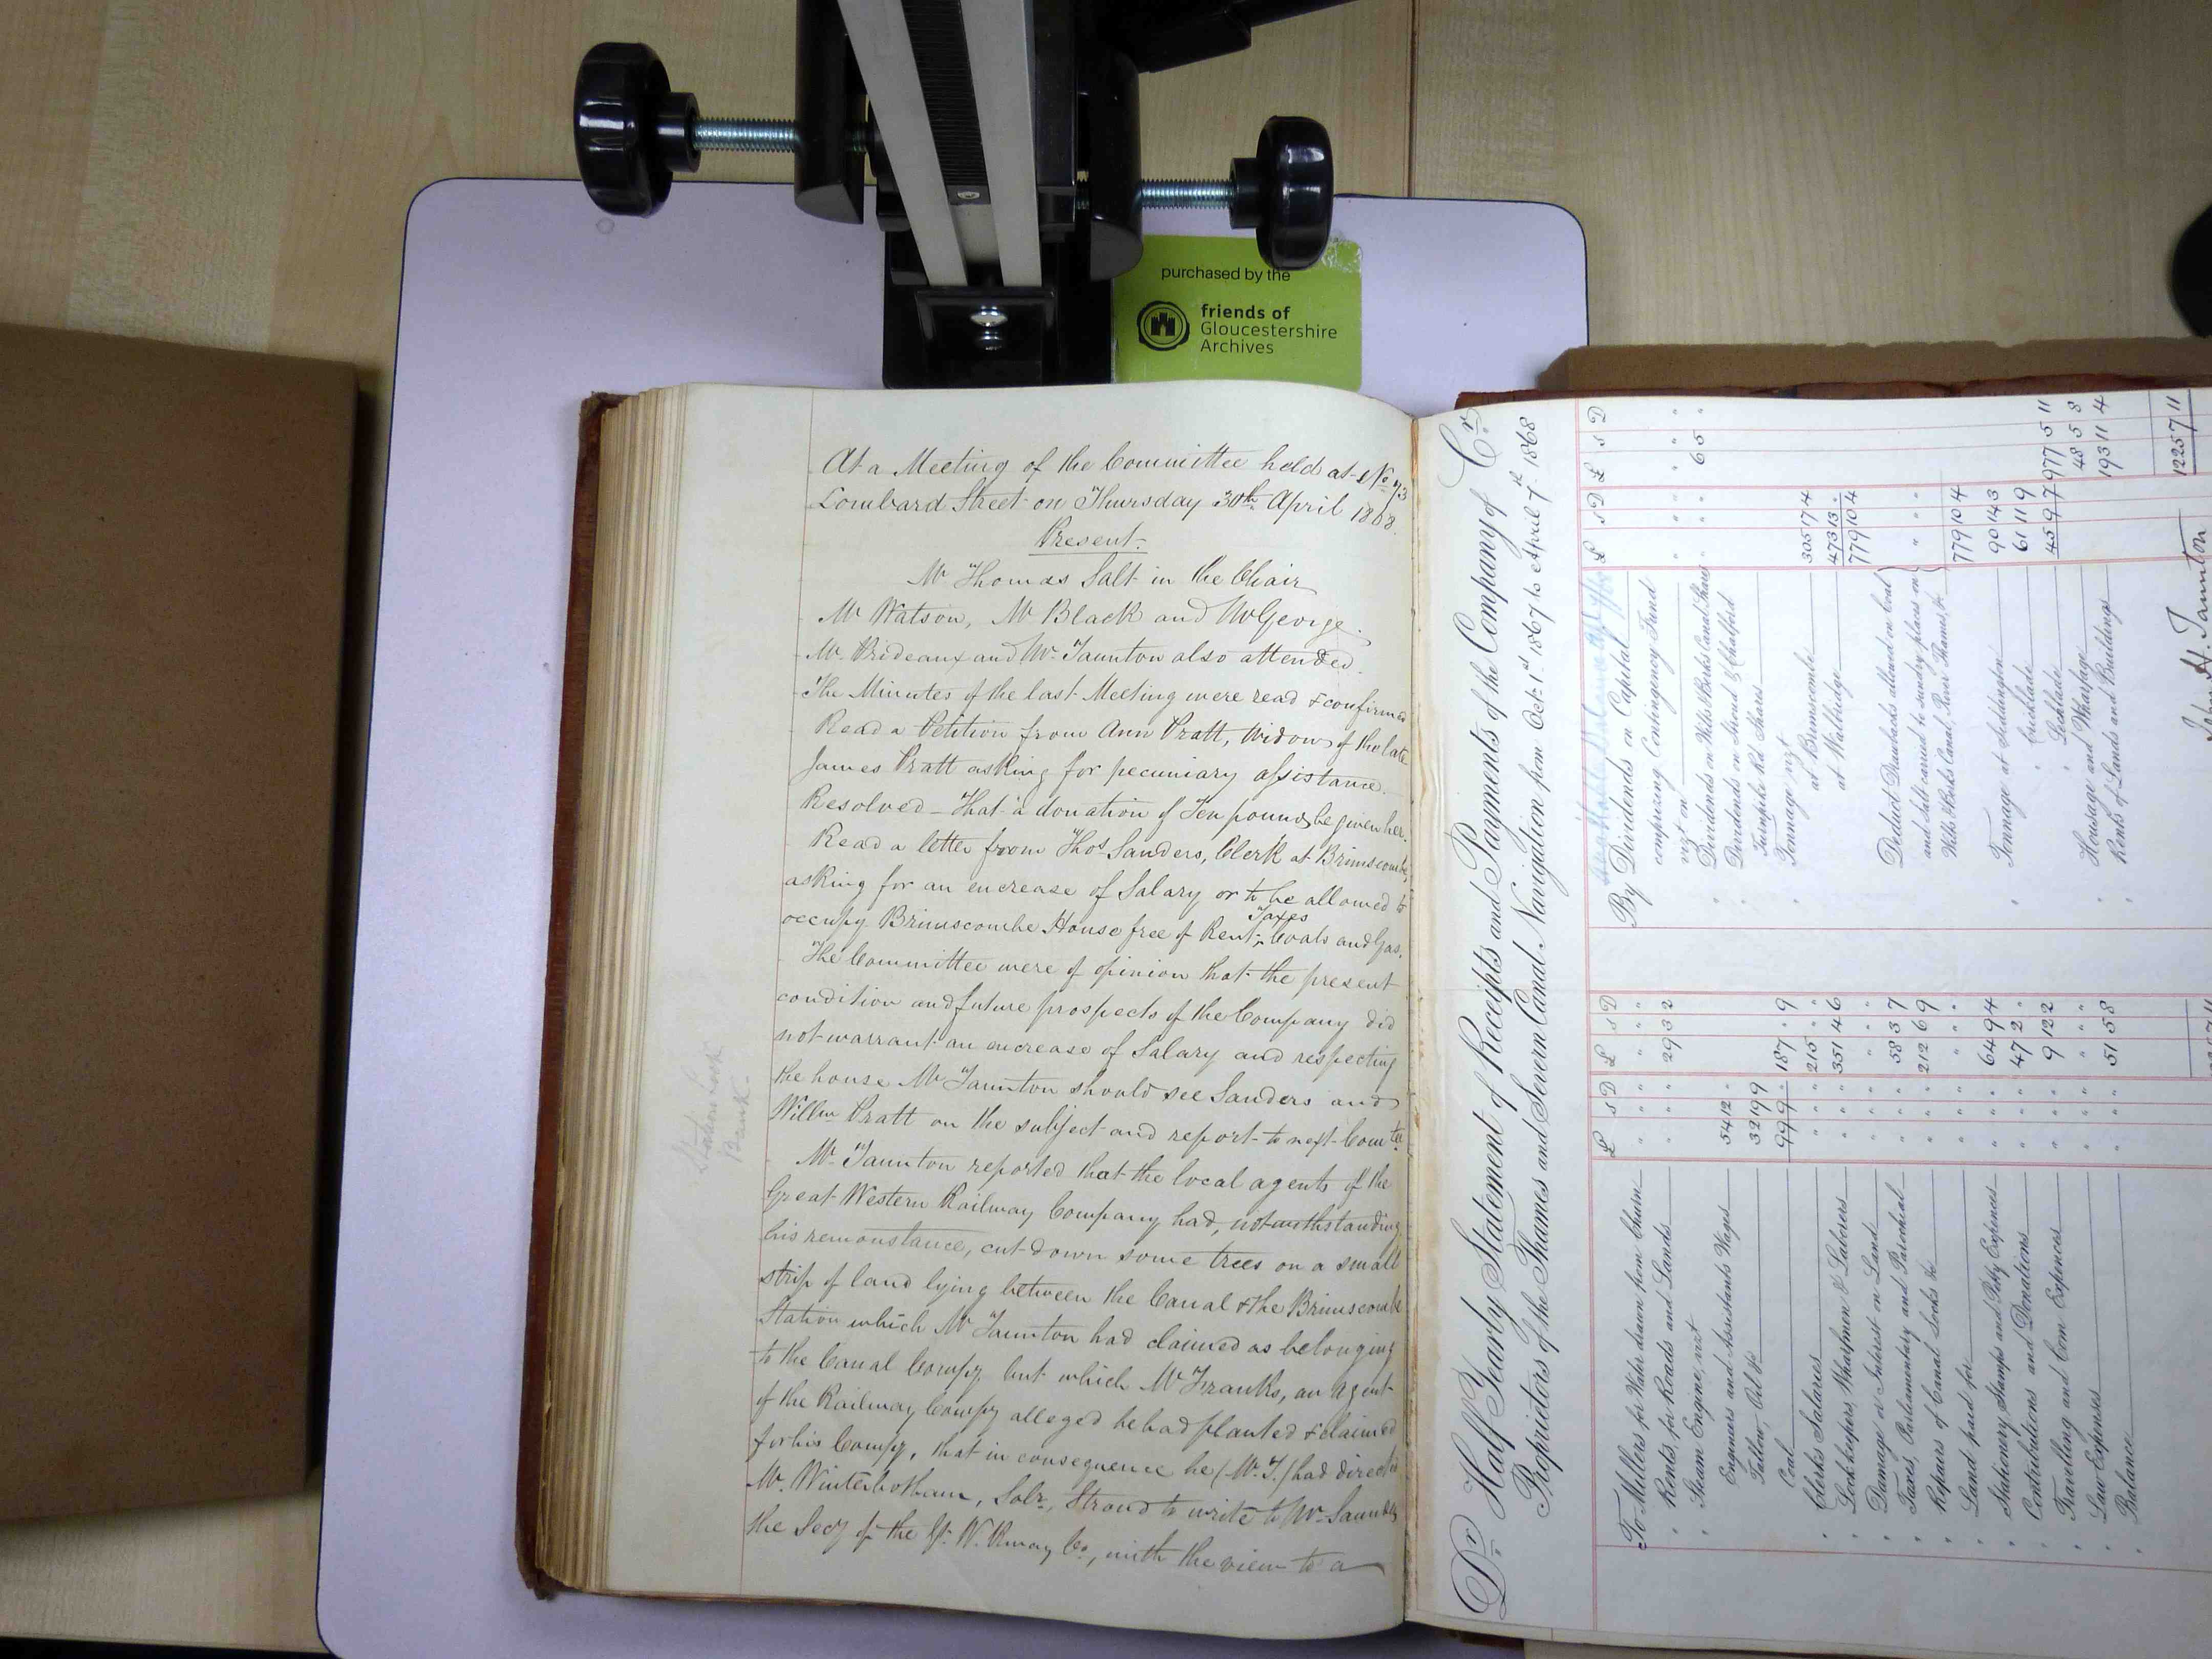 purchased by the
friends of
Gloucestershire
Archives
At a Meeting of the Committee held at No 73
Lombard Street on Thursday 30th April 1868
Present
Mr Thomas Salt in the Chair
Mr Watson, Mr Black and Mr George.
Mr Prideaux and Mr Taunton also attended.
The Minutes of the last Meeting were read & confirmed
Read a Petition from Ann Pratt, Widow of the late
James Pratt asking for pecuniary assistance.
Resolved - That a donation of Ten pounds be given her.
Read a letter from Thos Sanders, Clerk at Brimscombe,
asking for an encrease of Salary or to be allowed to
occupy Brimscombe House free of Rent, Taxes Coals and Gas.
The Committee were of opinion that the present
condition and future prospects of the Company did
not warrant an encrease of Salary and respecting
the house Mr Taunton should see Sanders and
Willm Pratt on the subject and report to next Comtee
Mr Taunton reported that the local agents of the
Great Western Railway Company had, notwithstanding
his remonstance, cut down some trees on a small
strip of land lying between the Canal & the Brimscombe
Station which Mr Taunton had claimed as belonging
to the Canal Compy but which Mr Franks, an agent
of the Railway Compy alleged he had planted & claimed
for his Compy, that in consequence he (Mr T.) had directed
Mr Winterbotham, Solr, Stroud to write to Mr Saunders
the Secy of the Gt. W. Rway Co, with the view to a
Station Lock
Bank
Dr Half Yearly Statement of Receipts and Payments of the Company of Cr
Proprietors of the Thames and Severn Canal Navigation from Octr 1st 1867 to April 1st 1868
£ s D £ s D
To Millers for Water drawn from Churn " " " " " "
" Rents, for Roads and Lands " " " 29 3 2
" Steam Engine, vizt
Engineers and Assistants Wages 54 12 "
Tallow, Oil &c 32 19 9
Coal 99 9 " 187 " 9
" Clerks Salaries " " " 215 " "
" Lockkeepers, Wharfmen & Laborers " " " 351 4 6
" Damage or Interest on Land " " " " " "
" Taxes, Parliamentary and Parochial " " " 58 3 7
" Repairs of Canal Locks &c " " " 212 6 9
" Land paid for " " " " " "
" Stationery, Stamps and Petty Expences " " " 64 9 4
" Contributions and Donations " " " 47 2 "
" Travelling and Com. Expences " " " 9 12 2
" Law Expenses " " " " " "
" Balance " " " 51 5 8
£ s D £ s D
By Dividends on Capital
comprizing Contingency Fund
vizt on " " " " " "
" Dividends on Wilts & Berks Canal Shares
Dividends on Stroud & Chalford
Turnpike Rd Shares " " " 6 5 "
" Tonnage vizt
at Brimscombe 305 17 4
at Wallbridge 473 13 "
779 10 4
Deduct Drawbacks allowed on Coal
and Salt carried to sundry places on
Wilts & Berks Canal, River Thames, &c " " "
779 10 4
" Tonnage at Siddington 90 14 3
" Cricklade 61 11 9
" Lechlade 45 9 7 977 5 11
" Housage and Wharfage 48 5 8
" Rents of Lands and Buildings 193 11 4
1225 7 11
John H. Taunton